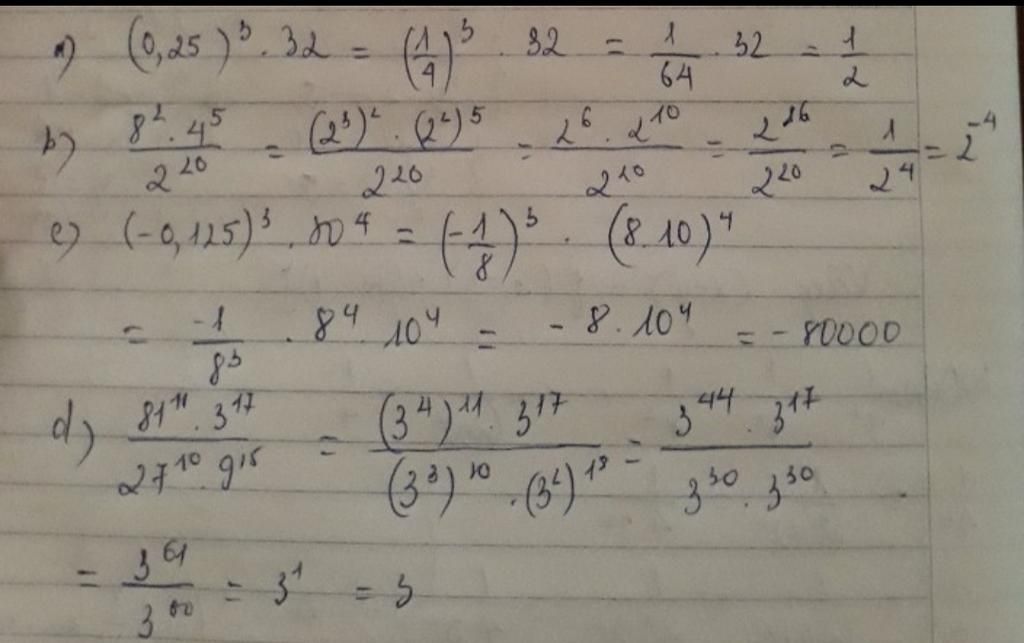 a) (0,25)³ · 32 = (1/4)³ · 32 = 1/64 · 32 = 1/2
b) (8² · 4⁵)/2²⁰ = ((2³)² · (2²)⁵)/2²⁰ = (2⁶ · 2¹⁰)/2²⁰ = 2¹⁶/2²⁰ = 1/2⁴ = 2⁻⁴
c) (-0,125)³ · 80⁴ = (-1/8)³ · (8.10)⁴
= -1/8³ · 8⁴ · 10⁴ = -8 · 10⁴ = -80000
d) (81¹¹ · 3¹⁷)/(27¹⁰ · 9¹⁵) = ((3⁴)¹¹ · 3¹⁷)/((3³)¹⁰ · (3²)¹⁵) = (3⁴⁴ · 3¹⁷)/(3³⁰ · 3³⁰)
= 3⁶¹/3⁶⁰ = 3¹ = 3